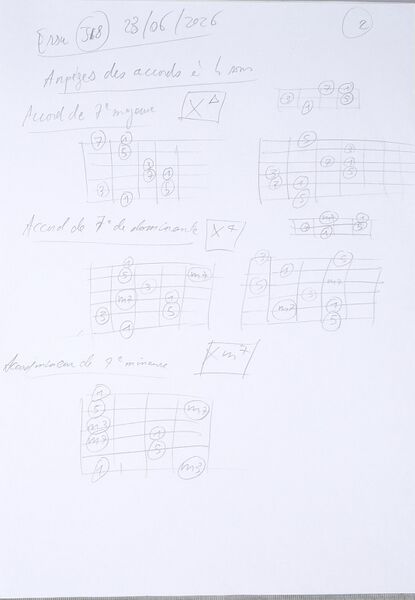 Essu J18 23/06/2026 2
Arpèges des accords à 4 sons
Accord de 7e majeure X△
7 1
3 5
1
7 1
5
3 5
1
5
3
7 1
3 5
1
5
Accord de 7e de dominante X7
m7 1
3 5
1
5 m7
3
m7 1
3 5
1
3 5
1
5 m7
3
1
m7 5
5
Accord mineur de 7e mineure Xm7
1
5 m7
m3
m7 1
5
1 m3